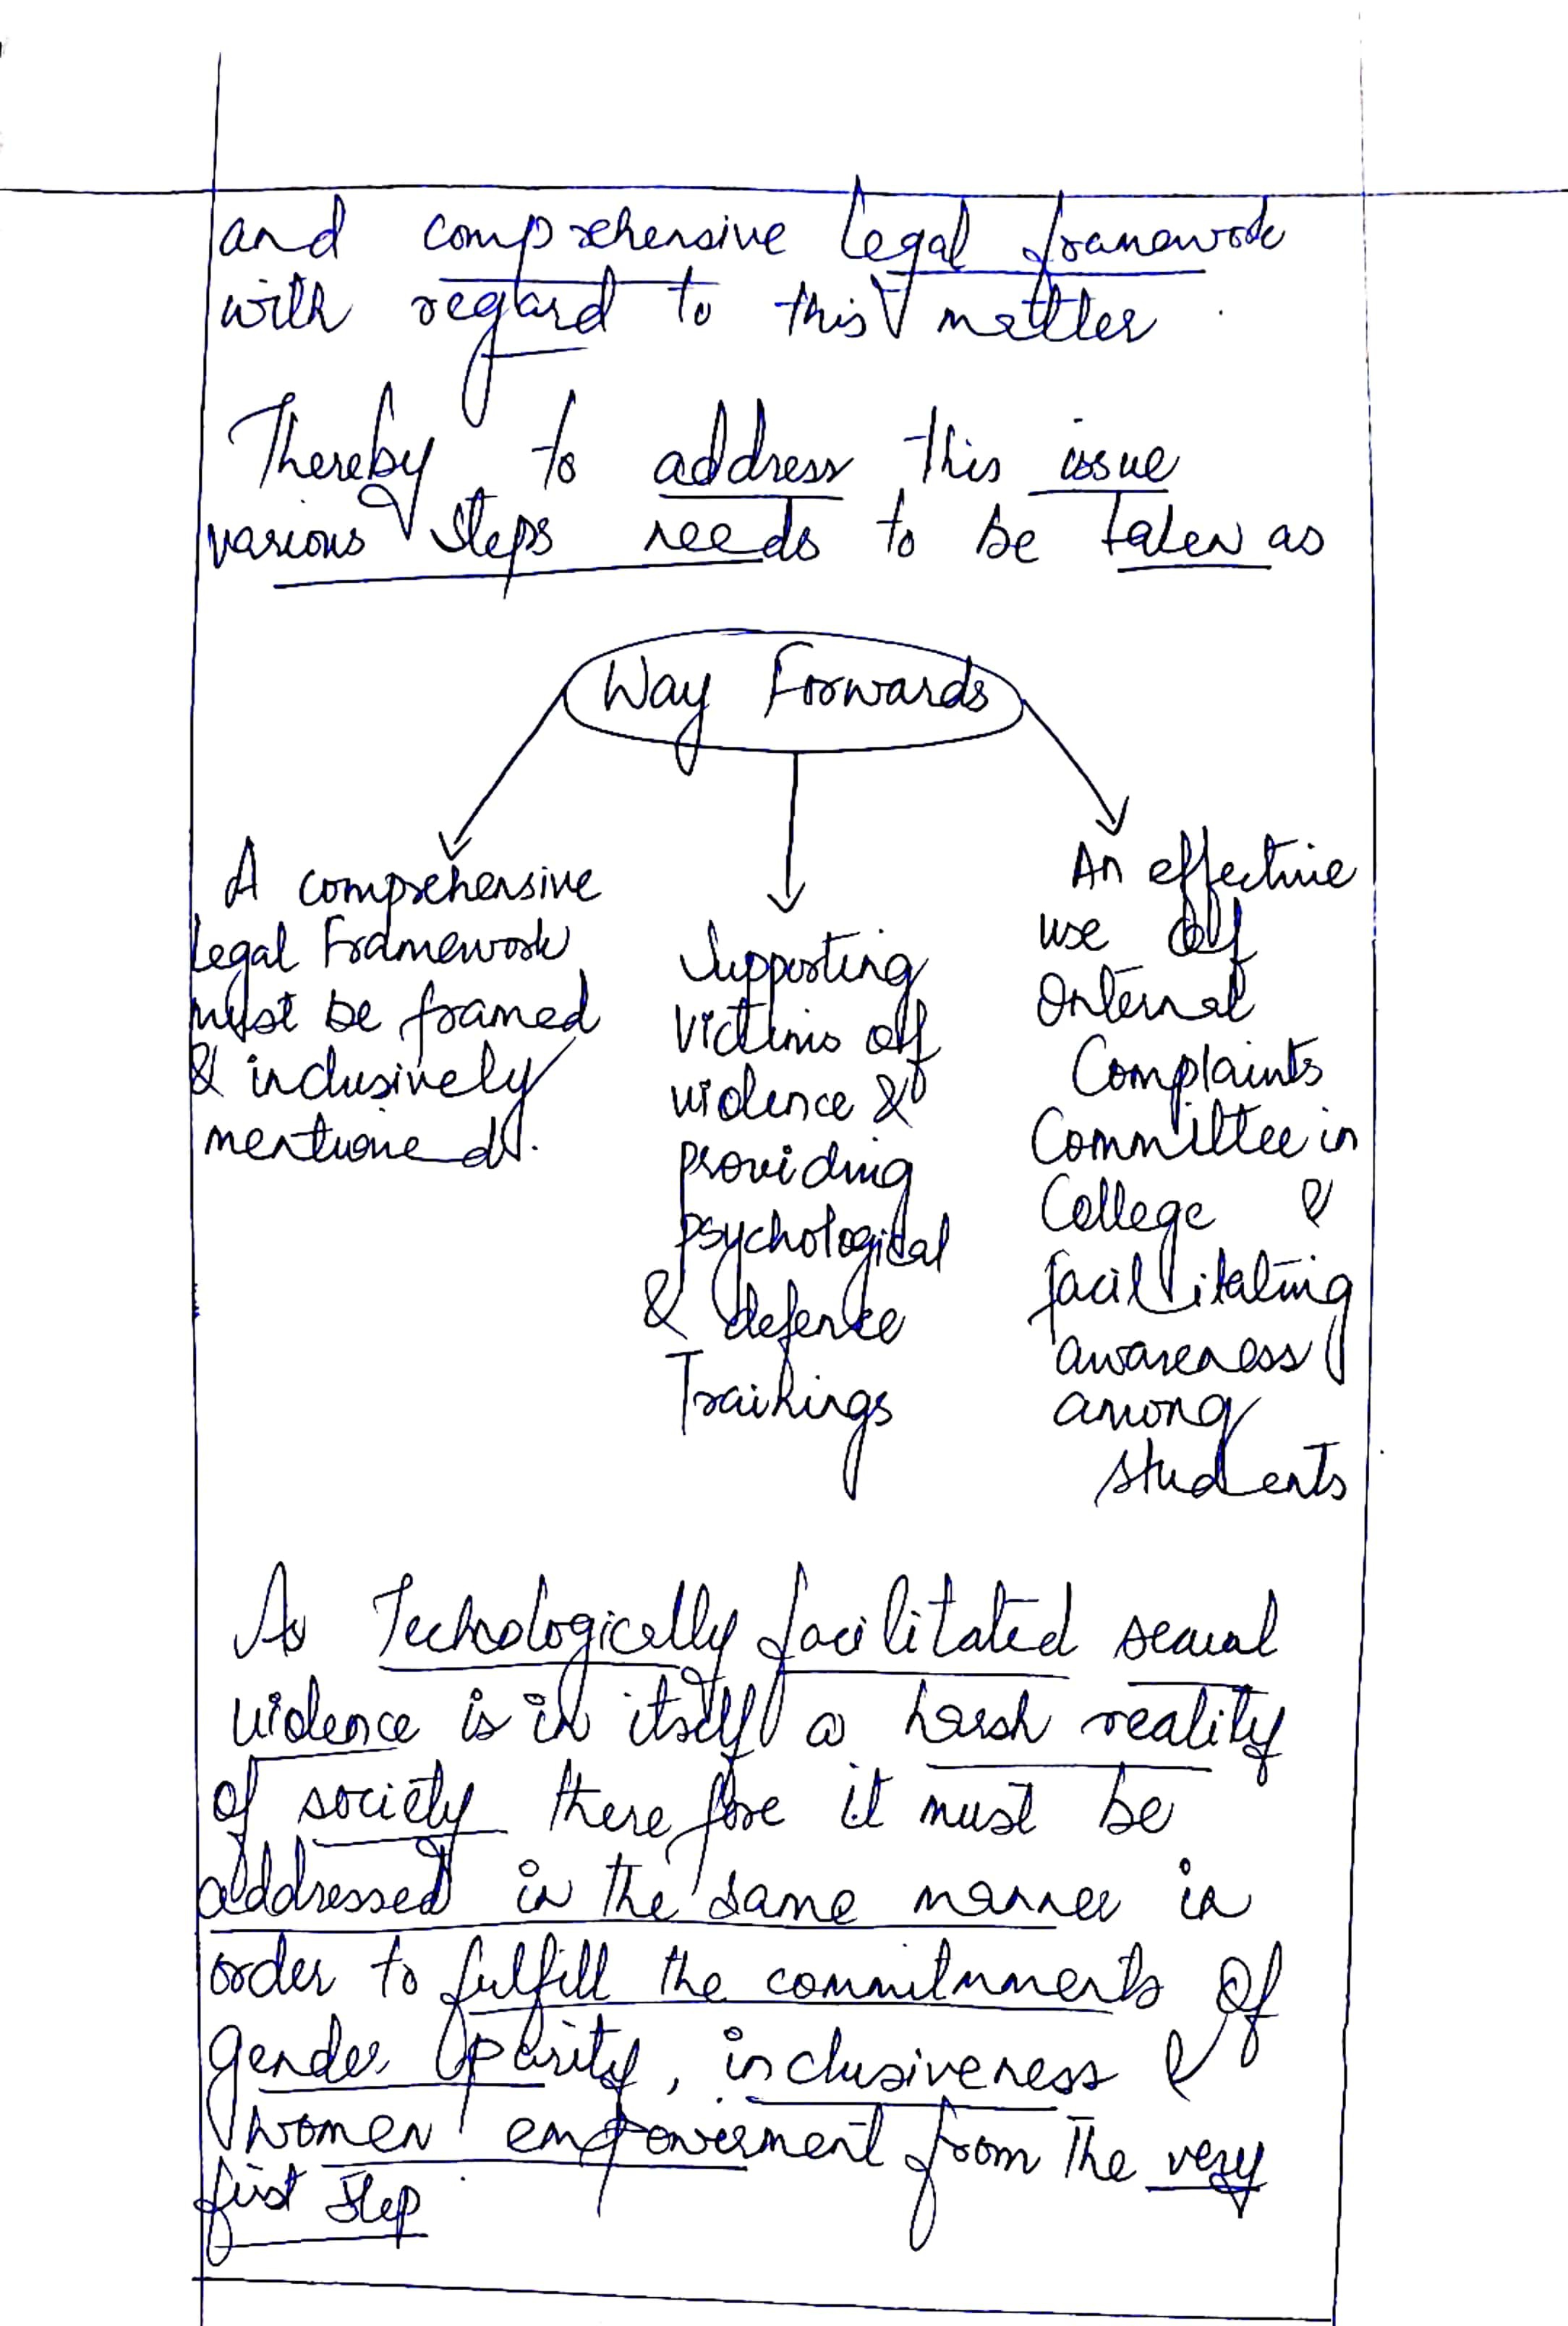 and comprehensive legal framework
with regard to this matter.
Thereby to address this issue
various steps needs to be taken as
Way Forwards
A comprehensive
legal Framework
must be framed
& inclusively
mentioned.
Supporting
victims of
violence &
providing
psychological
& defence
Trainings
An effective
use of
Internal
Complaints
Committee in
College &
facilitating
awareness
among
students
As Technologically facilitated sexual
violence is in itself a harsh reality
of society therefore it must be
addressed in the same manner in
order to fulfill the commitments of
gender parity, inclusiveness &
women empowerment from the very
first step